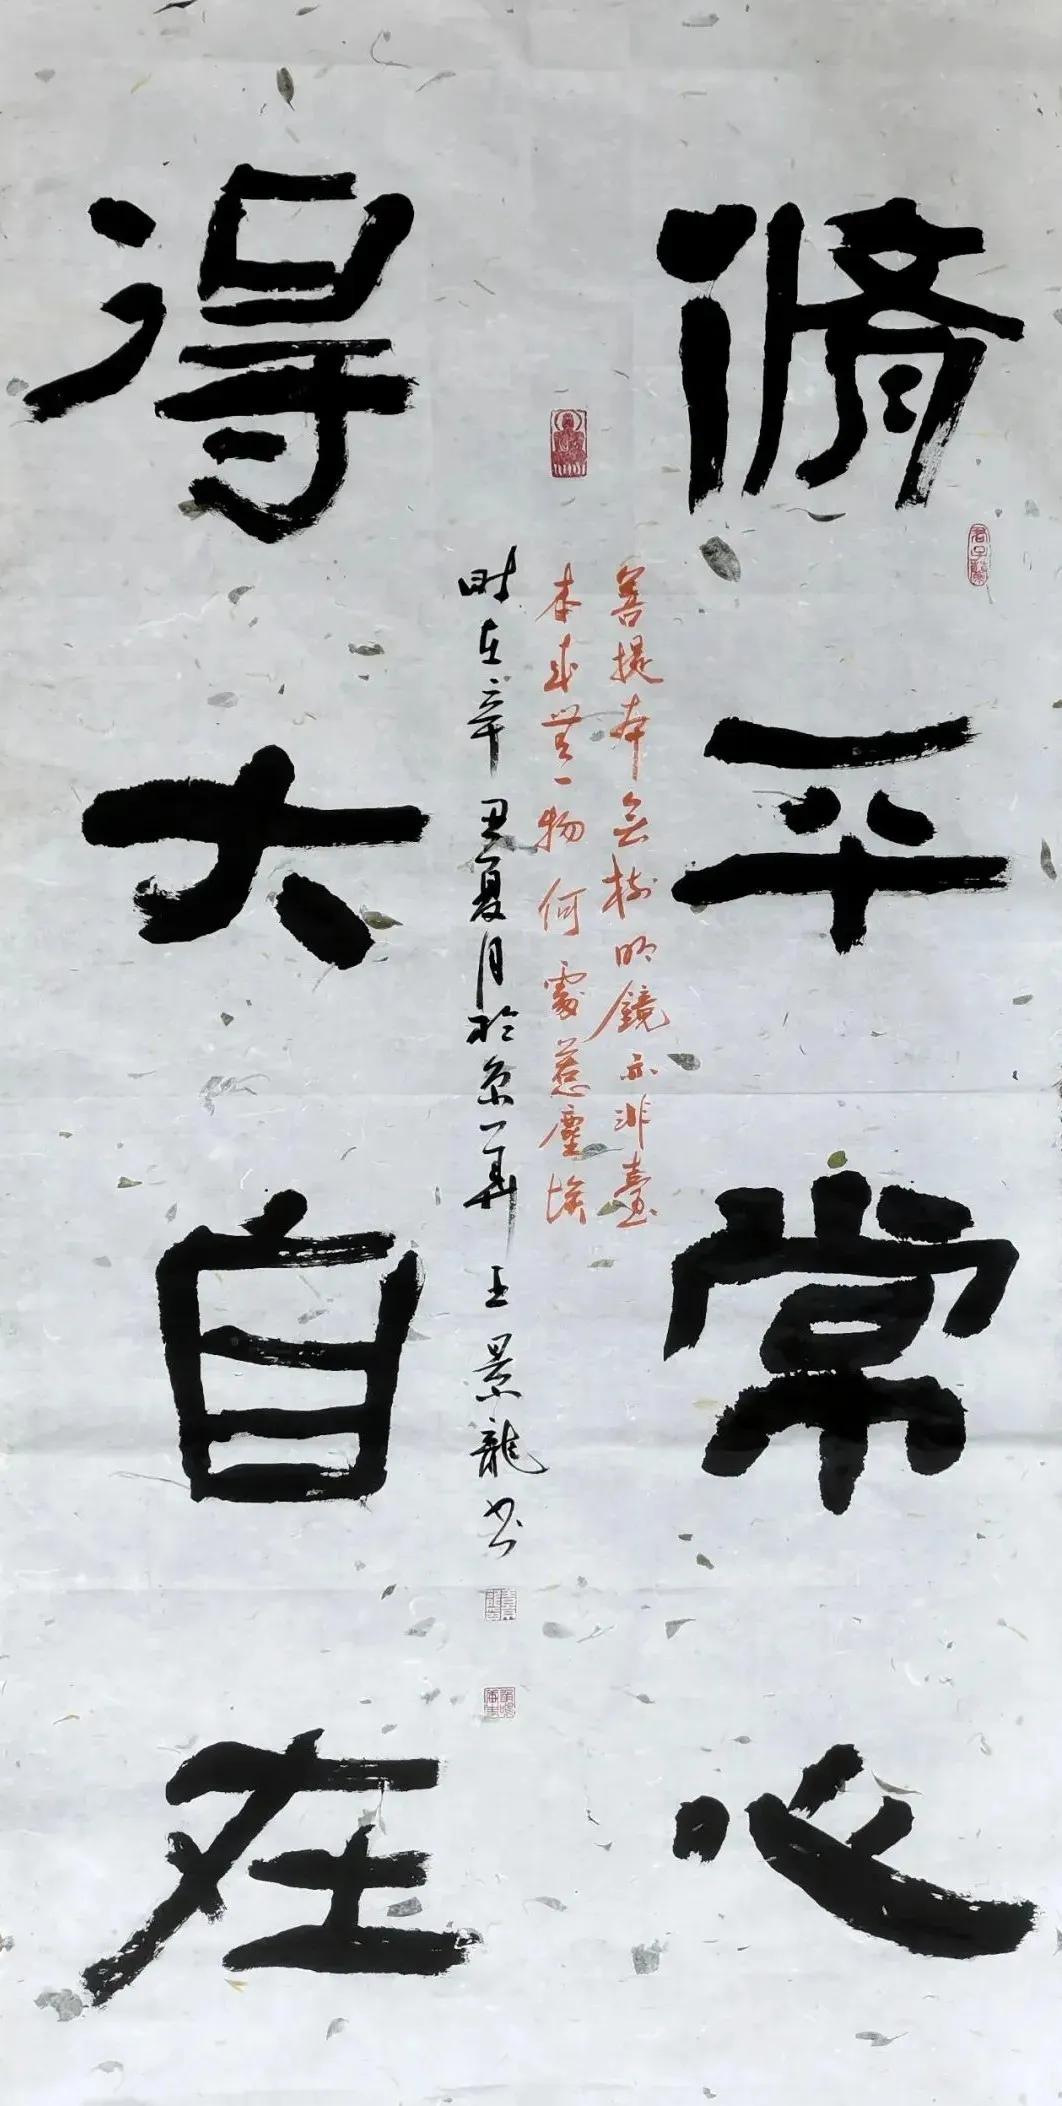 脩平常心
得大自在
菩提本無樹明鏡亦非臺
本來無一物何處惹塵埃
時在辛丑夏月於京華王景龍書